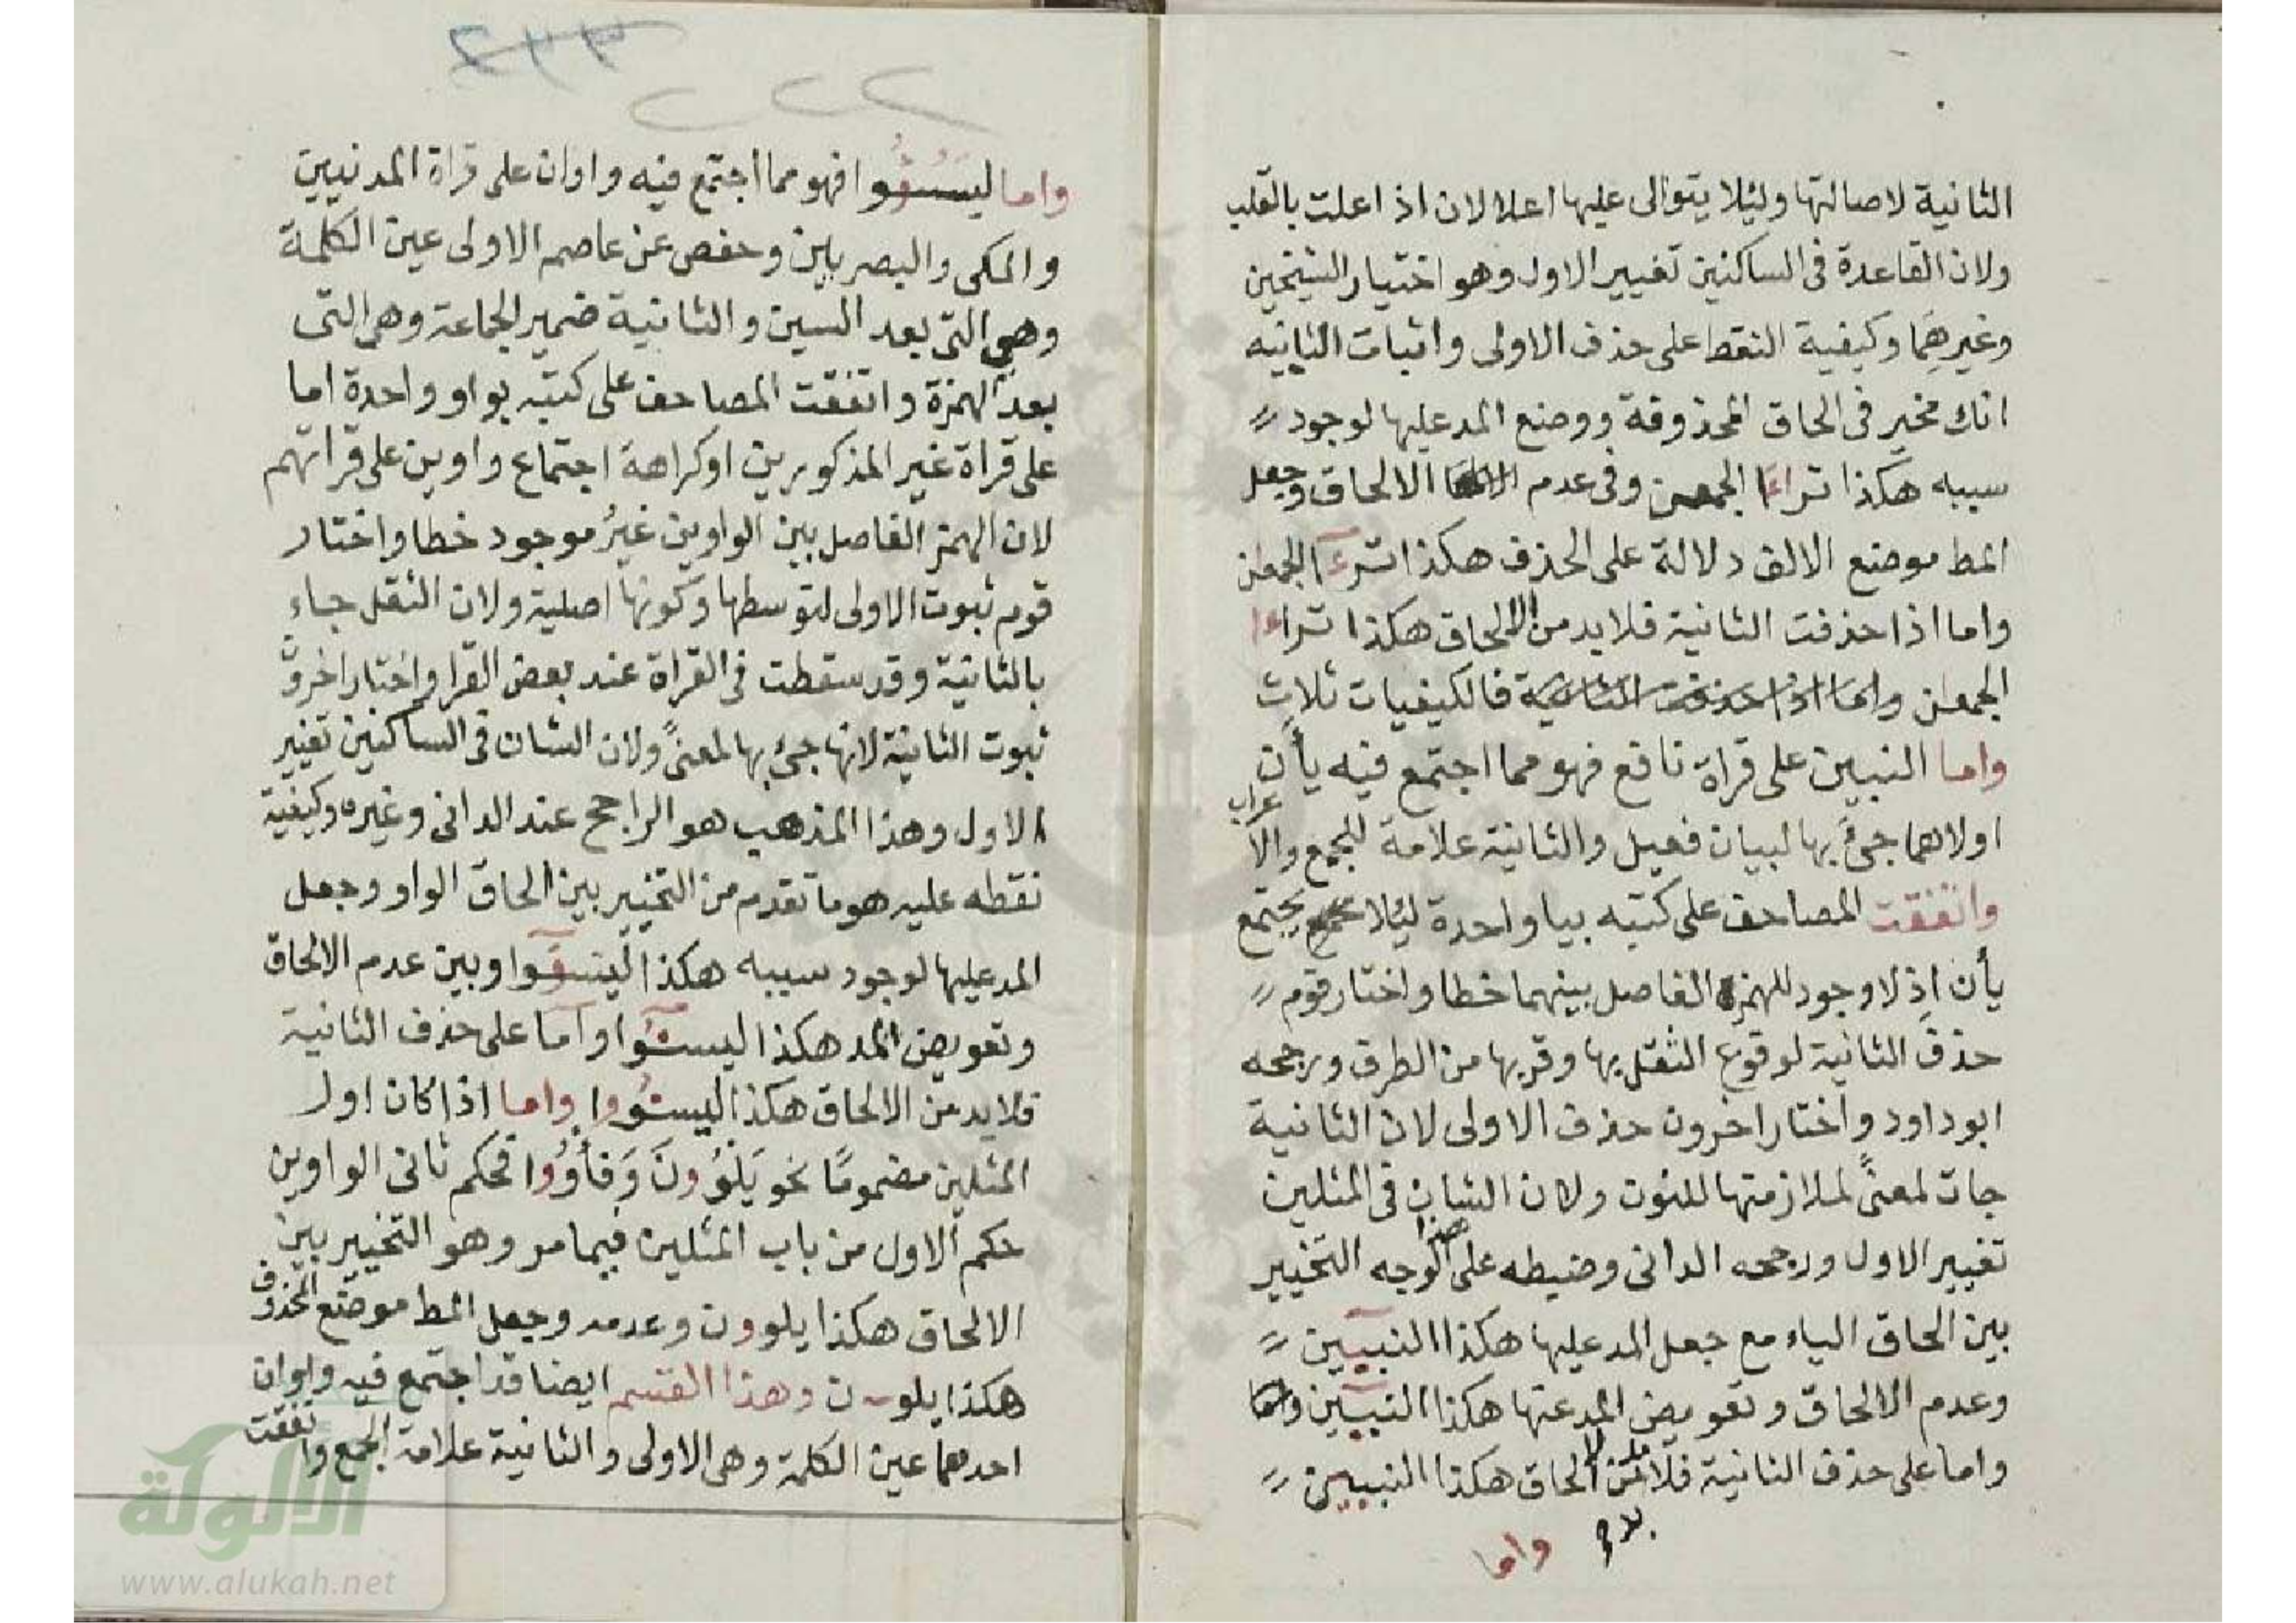 الثانية لاصالتها وليلا يتوالى عليها اعلالان اذ اعلت بالقلب
ولان القاعدة فى الساكنين تغيير الاول وهو اختيار الشيخين
وغيرهما وكيفية النقط على حذف الاولى واثبات الثانيه
انك مخير فى الحاق المحذوفة ووضع المد عليها لوجود
سببه هكذا تراءا الجمعن وفى عدم الالحاق وجعل
المط موضع الالف دلالة على الحذف هكذا ترءا الجمعن
واما اذا حذفت الثانية فلابد من الالحاق هكذا تراءا
الجمعن واما اذا حذفت الثانية فالكيفيات ثلاث
واما النبيين على قراة نافع فهو مما اجتمع فيه يأان
اولاهما جئ بها لبيان فعيل والثانية علامة للجمع والاعراب
واتفقت المصاحف على كتبه بيا واحدة ليلا يجتمع
يأان اذ لا وجود للهمزة الفاصل بينهما خطا واختار قوم
حذف الثانية لوقوع الثقل بها وقربها من الطرف ورجحه
ابو داود واختار اخرون حذف الاولى لان الثانية
جات لمعنىً لملازمتها للنون ولان الشان فى المثلين
تغيير الاول ورجحه الدانى وضبطه على هذا الوجه التخيير
بين الحاق الياء مع جعل المد عليها هكذا النبيين
وعدم الالحاق وتعويض المد عنها هكذا النبيين واما
واما على حذف الثانية فلابد من الالحاق هكذا النبيين
واما
٢٢٢
واما ليسئوا فهو مما اجتمع فيه واوان على قراة المدنيين
والمكى والبصريين وحفص عن عاصم الاولى عين الكلمة
وهي التى بعد السين والثانية ضمير الجماعة وهى التى
بعد الهمزة واتفقت المصاحف على كتبه بواو واحدة اما
على قراة غير المذكورين او كراهة اجتماع واوين على قراتهم
لان الهمز الفاصل بين الواوين غيرُ موجود خطا واختار
قوم ثبوت الاولى لتوسطها وكونها اصلية ولان الثقل جاء
بالثانية وقد سقطت فى القراة عند بعض القرا واختار اخرون
ثبوت الثانية لانها جئ بها لمعنىً ولان الشان فى الساكنين تغيير
الاول وهذا المذهب هو الراجح عند الدانى وغيره وكيفية
نقطه عليه هو ما تقدم من التخيير بين الحاق الواو وجعل
المد عليها لوجود سببه هكذا ليسئوا وبين عدم الالحاق
وتعويض المد هكذا ليسئوا واما على حذف الثانية
فلابد من الالحاق هكذا ليسئووا واما اذا كان اول
المثلين مضمومًا نحو يَلْوُونَ وَفَأْوُوا فحكم ثانى الواوين
حكم الاول من باب المثلين فيما مر وهو التخيير بين
الالحاق هكذا يلوون وعدمه وجعل المط موضع المحذوف
هكذا يلو ن وهذا القسم ايضا قد اجتمع فيه واوان
احدهما عين الكلمة وهى الاولى والثانية علامة الجمع واتفقت
الألوكة
www.alukah.net